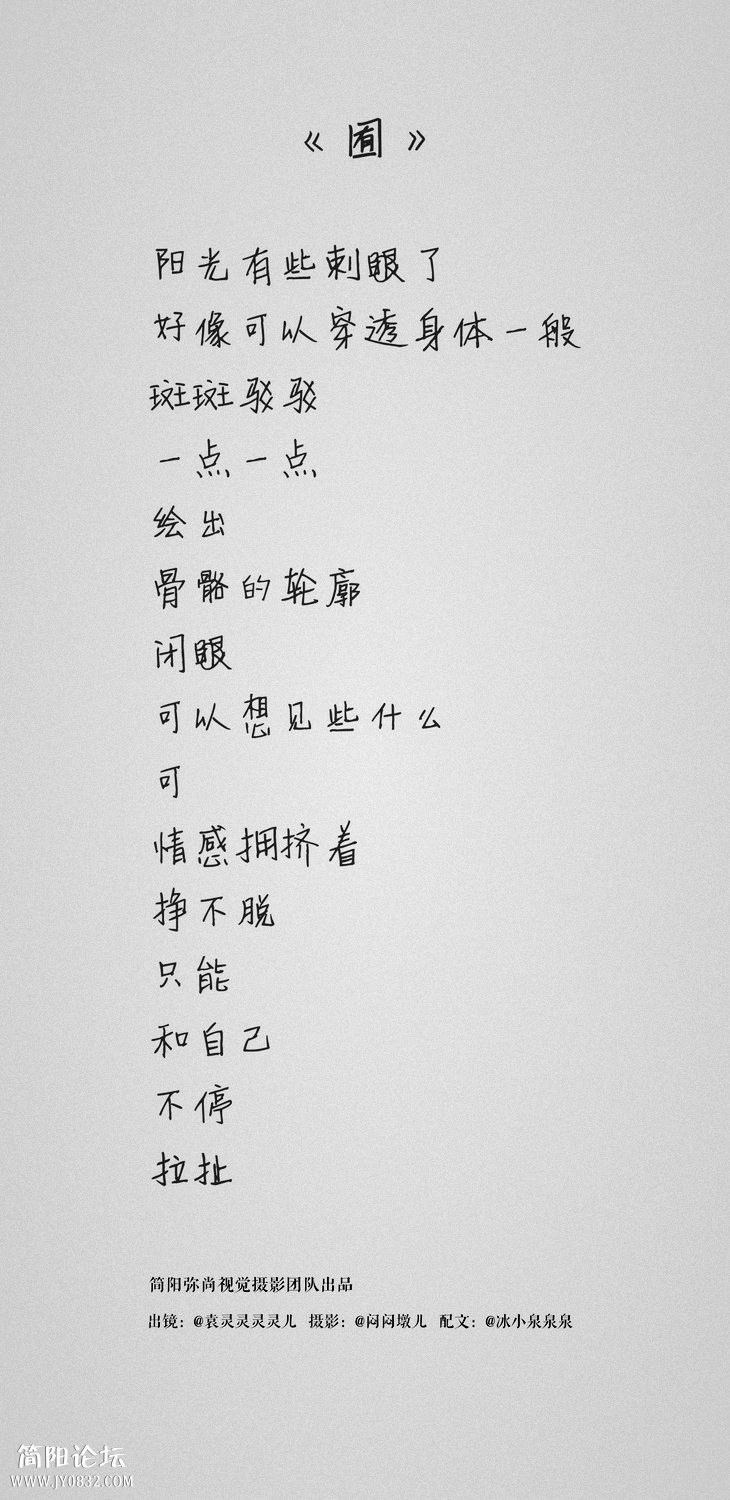 《囿》
阳光有些刺眼了
好像可以穿透身体一般
斑斑驳驳
一点一点
绘出
骨骼的轮廓
闭眼
可以想见些什么
可
情感拥挤着
挣不脱
只能
和自己
不停
拉扯
简阳弥尚视觉摄影团队出品
出镜：@袁灵灵灵灵儿 摄影：@闷闷墩儿 配文：@冰小泉泉泉
简阳论坛
WWW.JY0832.COM